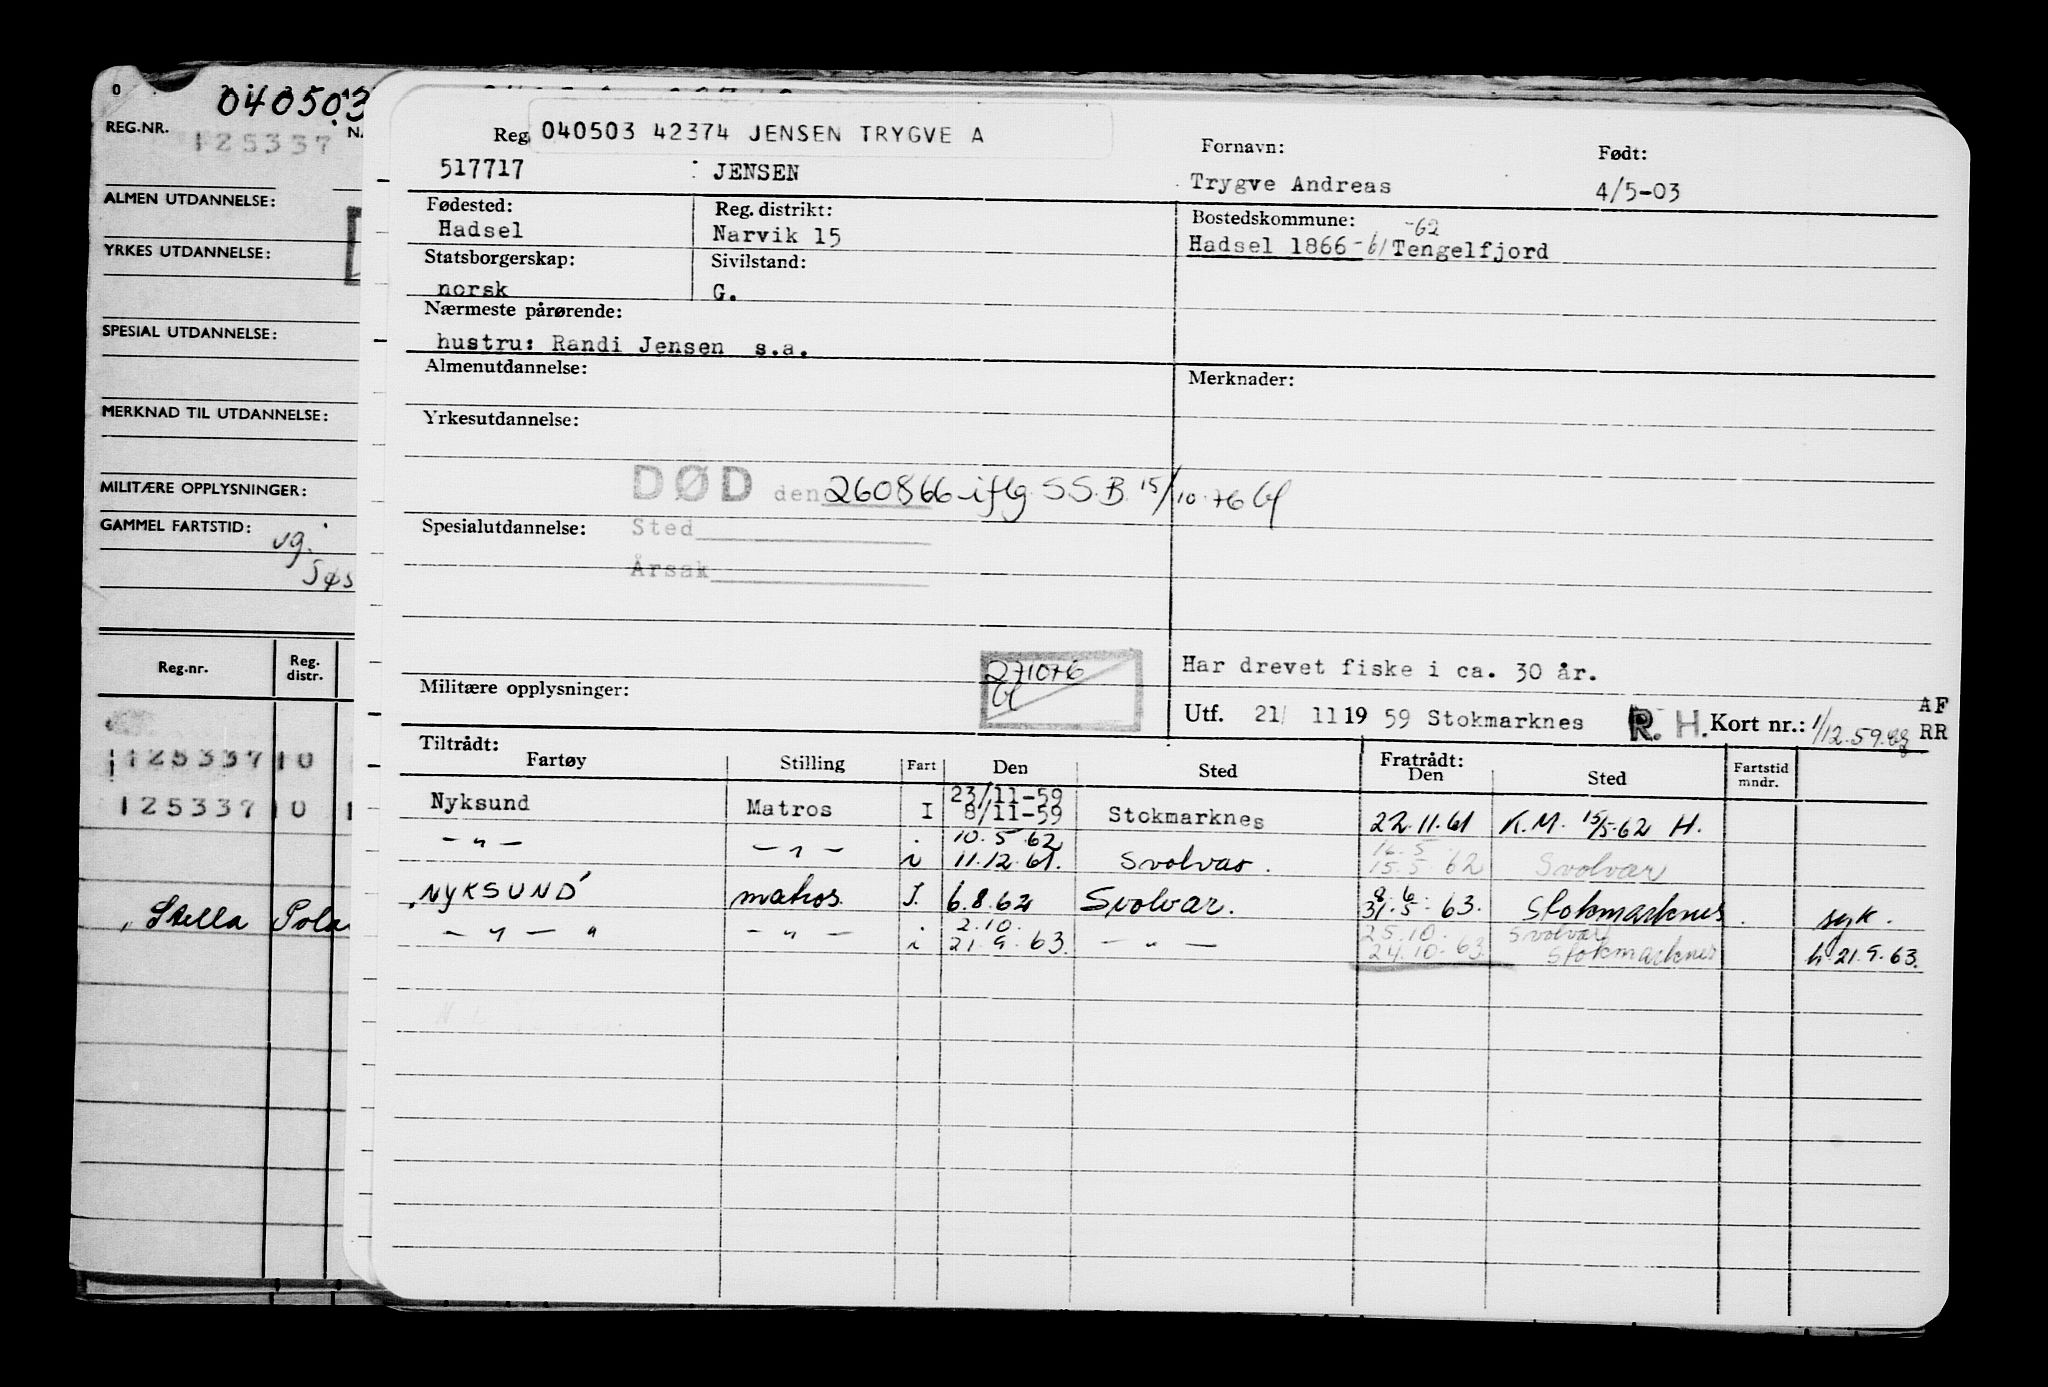 040503
REG.NR.
125337
ALMEN UTDANNELSE:
YRKES UTDANNELSE:
SPESIAL UTDANNELSE:
MERKNAD TIL UTDANNELSE:
MILITÆRE OPPLYSNINGER:
GAMMEL FARTSTID:
vg.
Reg.nr. Reg. distr.
125337 10
125337 10
Stella Pola
Reg. 040503 42374 JENSEN TRYGVE A
Fornavn: Født:
517717 JENSEN Trygve Andreas 4/5-03
Fødested: Reg. distrikt: Bostedskommune:
-62
Hadsel Narvik 15 Hadsel 1866 -61 Tengelfjord
Statsborgerskap: Sivilstand:
norsk G.
Nærmeste pårørende:
hustru: Randi Jensen s.a.
Almenutdannelse: Merknader:
Yrkesutdannelse:
DØD den 260866 iflg. S.S.B. 15/10.76
Spesialutdannelse: Sted
Årsak
271076
Har drevet fiske i ca. 30 år.
Militære opplysninger:
Utf. 21/ 11 19 59 Stokmarknes R. H. Kort nr.: 1/12.59. AF RR
Tiltrådt: Fratrådt:
Fartøy Stilling Fart Den Sted Den Sted Fartstid mndr.
23/11-59
Nyksund Matros I 8/11-59 Stokmarknes 22.11.61 K.M. 15/5-62 H.
10.5.62 16.5
-"- -"- i 11.12.61. Svolvær. 15.5.62 Svolvær
8.6.
NYKSUND matros. I. 6.8.62 Svolvær. 31.5.63. Stokmarknes. syk.
2.10. 25.10. Svolvær
-"-" -"- i 21.9.63. -"- 24.10.63. Stokmarknes h. 21.9.63.